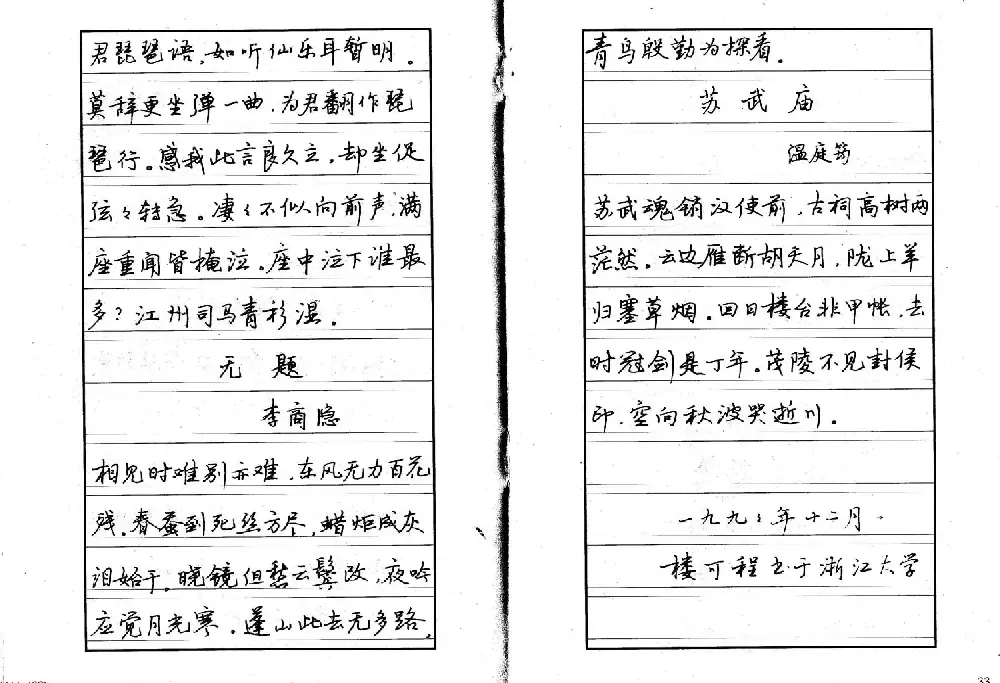 君琵琶语，如听仙乐耳暂明。
莫辞更坐弹一曲，为君翻作琵
琶行。感我此言良久立，却坐促
弦々转急。凄々不似向前声，满
座重闻皆掩泣。座中泣下谁最
多？江州司马青衫湿。
无题
李商隐
相见时难别亦难，东风无力百花
残。春蚕到死丝方尽，蜡炬成灰
泪始干。晓镜但愁云鬓改，夜吟
应觉月光寒。蓬山此去无多路，
青鸟殷勤为探看。
苏武庙
温庭筠
苏武魂销汉使前，古祠高树两
茫然。云边雁断胡天月，陇上羊
归塞草烟。回日楼台非甲帐，去
时冠剑是丁年。茂陵不见封侯
印，空向秋波哭逝川。
一九九〻年十二月．
楼可程书于浙江大学
33